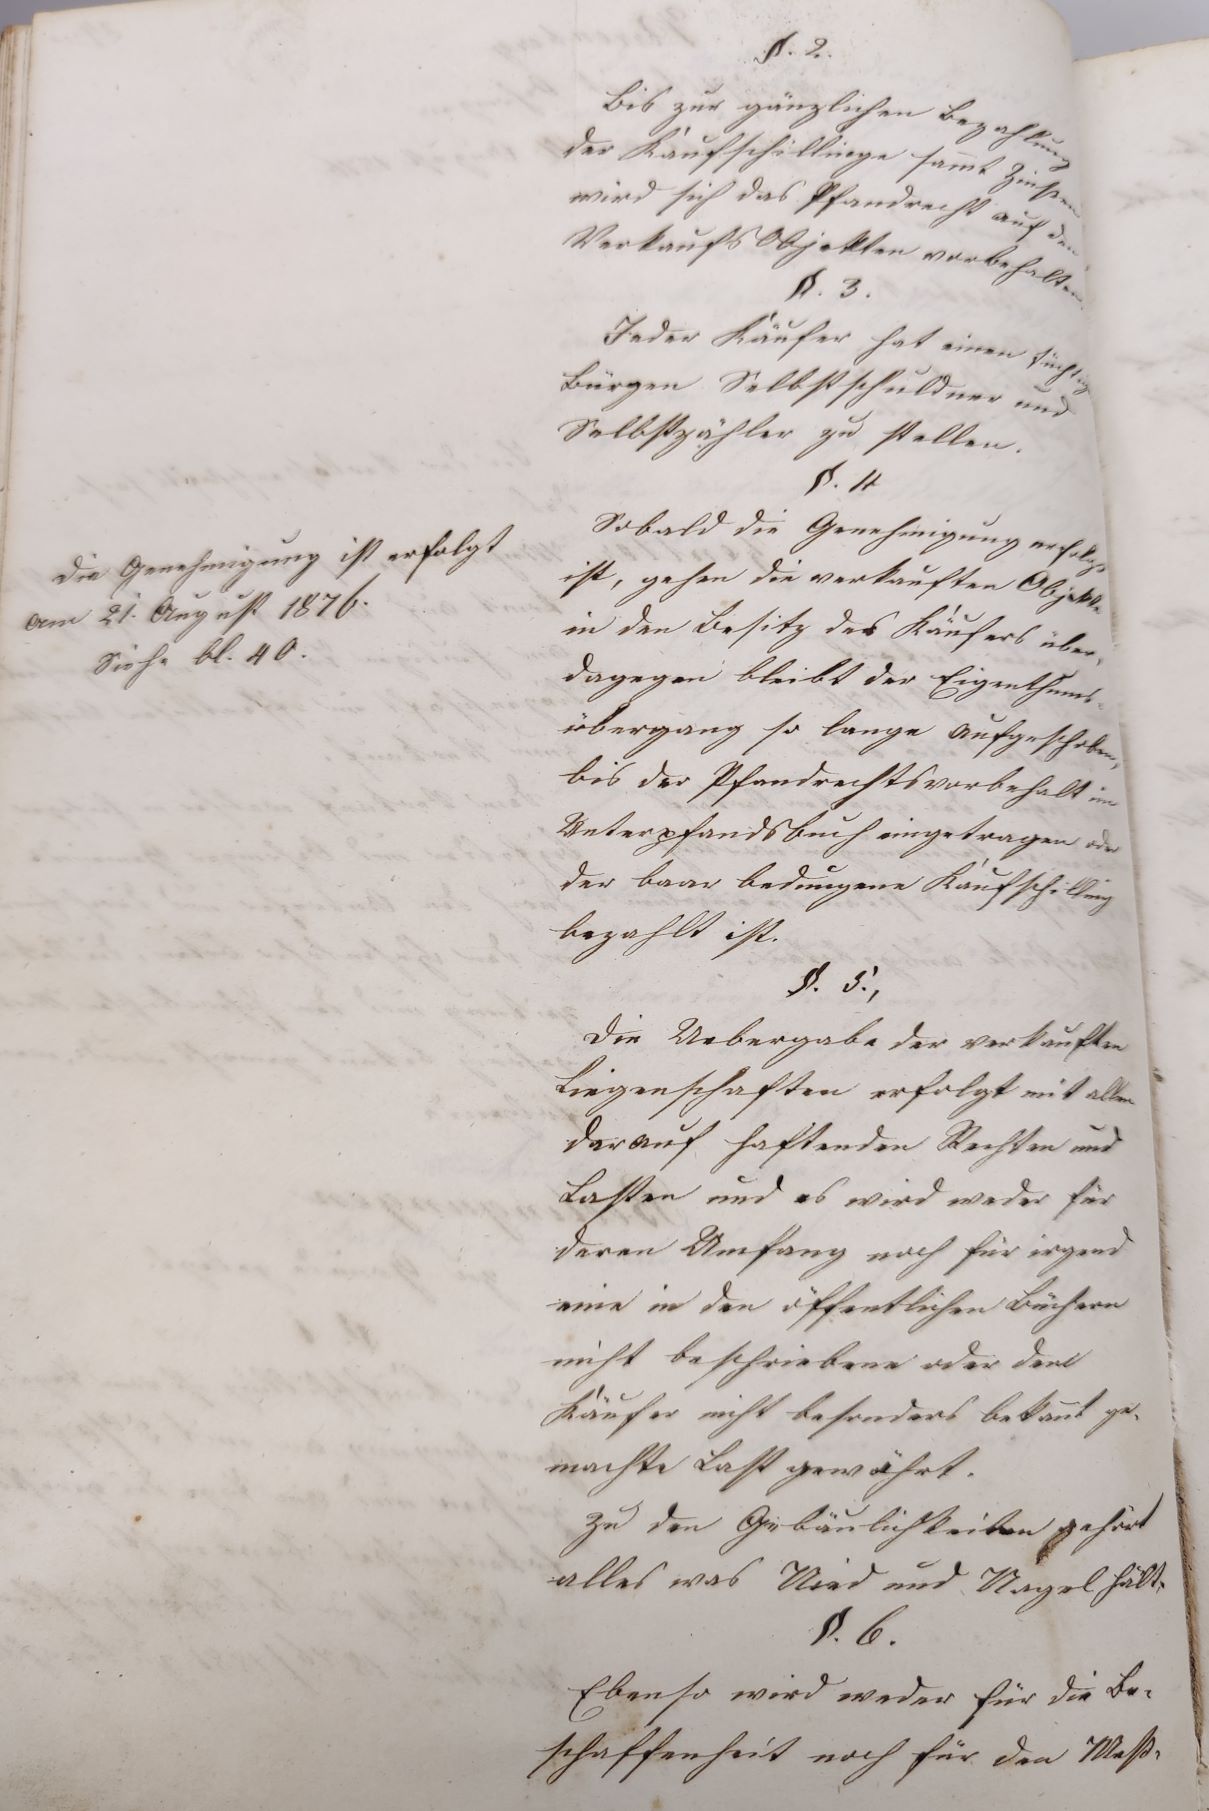 §. 2.
Bis zur gänzlichen Bezahlung
der Kaufschillinge sammt Zinsen
wird sich das Pfandrecht auf den
Verkaufs Objekten vorbehalten.
§. 3.
Jeder Käufer hat einen tüchtig
Bürgen Selbstschuldner und
Selbstzahler zu stellen.
§. 4
Sobald die Genehmigung erfolgt
ist, gehen die verkauften Objekte
in den Besitz des Käufers über,
dagegen bleibt der Eigenthums-
übergang so lange aufgeschoben,
bis der Pfandrechtsvorbehalt im
Unterpfandsbuch eingetragen oder
der baar bedungene Kaufschilling
bezahlt ist.
die Genehmigung ist erfolgt
am 21. August 1876.
Siehe bl. 40.
§. 5.,
Die Uebergabe der verkauften
Liegenschaften erfolgt mit allen
darauf haftenden Rechten und
Lasten und es wird weder für
deren Umfang noch für irgend
eine in den öffentlichen Büchern
nicht beschriebene oder dem
Käufer nicht besonders bekannt ge-
machte Last gewährt.
Zu den Gebäulichkeiten gehört
alles was Nied und Nagel hält.
§. 6.
Ebenso wird weder für die Be-
schaffenheit noch für den Meß-